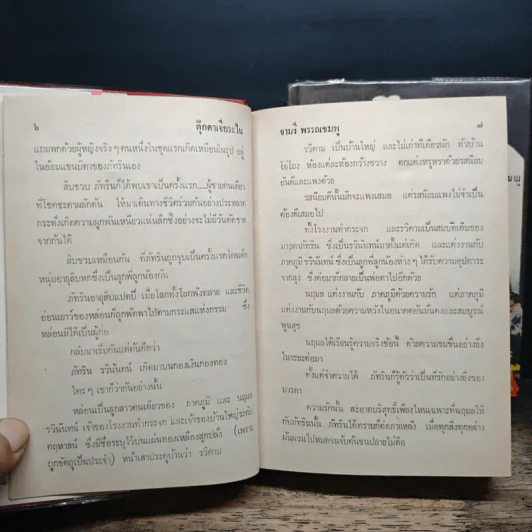 ๖ ตุ๊กตาเจียระไน
แถมพกด้วยผู้หญิงจริง ๆ คนหนึ่งในชุดแรกเกิดเหมือนในรูป อยู่
ในอ้อมแขนบิดาของภัทรินเอง
สิบขวบ ภัทรินก็ได้พบเขาเป็นครั้งแรก...ผู้ชายคนเดียว
ที่โชคชะตาผลักดัน ให้มาเดินทางชีวิตร่วมกันอย่างประหลาด
กระทั่งเกิดความผูกพันเหนียวแน่นลึกซึ้ง อย่างจะไม่มีวันตัดขาด
จากกันได้
สิบขวบเหมือนกัน ที่ภัทรินถูกจูบเป็นครั้งแรกโดยเด็ก
หนุ่มอายุสิบหกซึ่งเป็นลูกพี่ลูกน้องกัน
ภัทรินอายุสิบแปดปี เมื่อโลกทั้งโลกพังทลาย และชีวิต
อ่อนเยาว์ของหล่อนก็ถูกพัดพาไปตามกระแสแห่งกรรม ซึ่ง
หล่อนมิได้เป็นผู้ก่อ
กลับมาเริ่มกันแต่ต้นดีกว่า
ภัทริน รวินันทน์ เกิดมาบนกองเงินกองทอง
ใคร ๆ เขาก็ว่ากันอย่างนั้น
หล่อนเป็นลูกสาวคนเดียวของ ภาคภูมิ และ นฤมล
รวินันทน์ เจ้าของโรงงานทำกระจก และเจ้าของบ้านใหญ่ระดับ
คฤหาสน์ ซึ่งมีชื่อระบุไว้บนแผ่นทองเหลืองสุกปลั่ง (เพราะ
ถูกขัดถูเป็นประจำ) หน้าเสาประตูบ้านว่า รวิคาม
จามรี พรรณชมพู ๗
รวิคาม เป็นบ้านใหญ่ และไม่เก่าทีเดียวนัก ตัวบ้าน
โอ่โถง ห้องแต่ละห้องกว้างขวาง ตกแต่งหรูหราด้วยรสนิยม
อันดีและแพงด้วย
รสนิยมดีนั้นมักจะแพงเสมอ แต่รสนิยมแพงไม่จำเป็น
ต้องดีเสมอไป
ทั้งโรงงานทำกระจก และรวิคามเป็นสมบัติเดิมของ
มารดาภัทริน ซึ่งเป็นรวินันทน์มาตั้งแต่เกิด และแต่งงานกับ
ภาคภูมิ รวินันทน์ ซึ่งเป็นลูกพี่ลูกน้องห่าง ๆ ได้รับความอุปการะ
จากลุง ซึ่งต่อมากลายเป็นพ่อตาไปอีกด้วย
นฤมล แต่งงานกับ ภาคภูมิด้วยความรัก แต่ภาคภูมิ
แต่งงานกับนฤมลด้วยความหวังในอนาคตอันมั่นคง และสมบูรณ์
พูนสุข
นฤมลได้เรียนรู้ความจริงข้อนี้ ด้วยความขมขื่นอย่างยิ่ง
ในระยะต่อมา
ตั้งแต่จำความได้ ภัทรินก็รู้ดีว่าเป็นที่รักอย่างยิ่งของ
มารดา
ความรักนั้น สะอาดบริสุทธิ์เพียงไหนเฉพาะที่นฤมลให้
กับภัทรินนั้น ภัทรินได้ทราบก็ต่อภายหลัง เมื่อทุกสิ่งทุกอย่าง
ผันผวนไปหมดจนจับต้นชนปลายไม่ติด